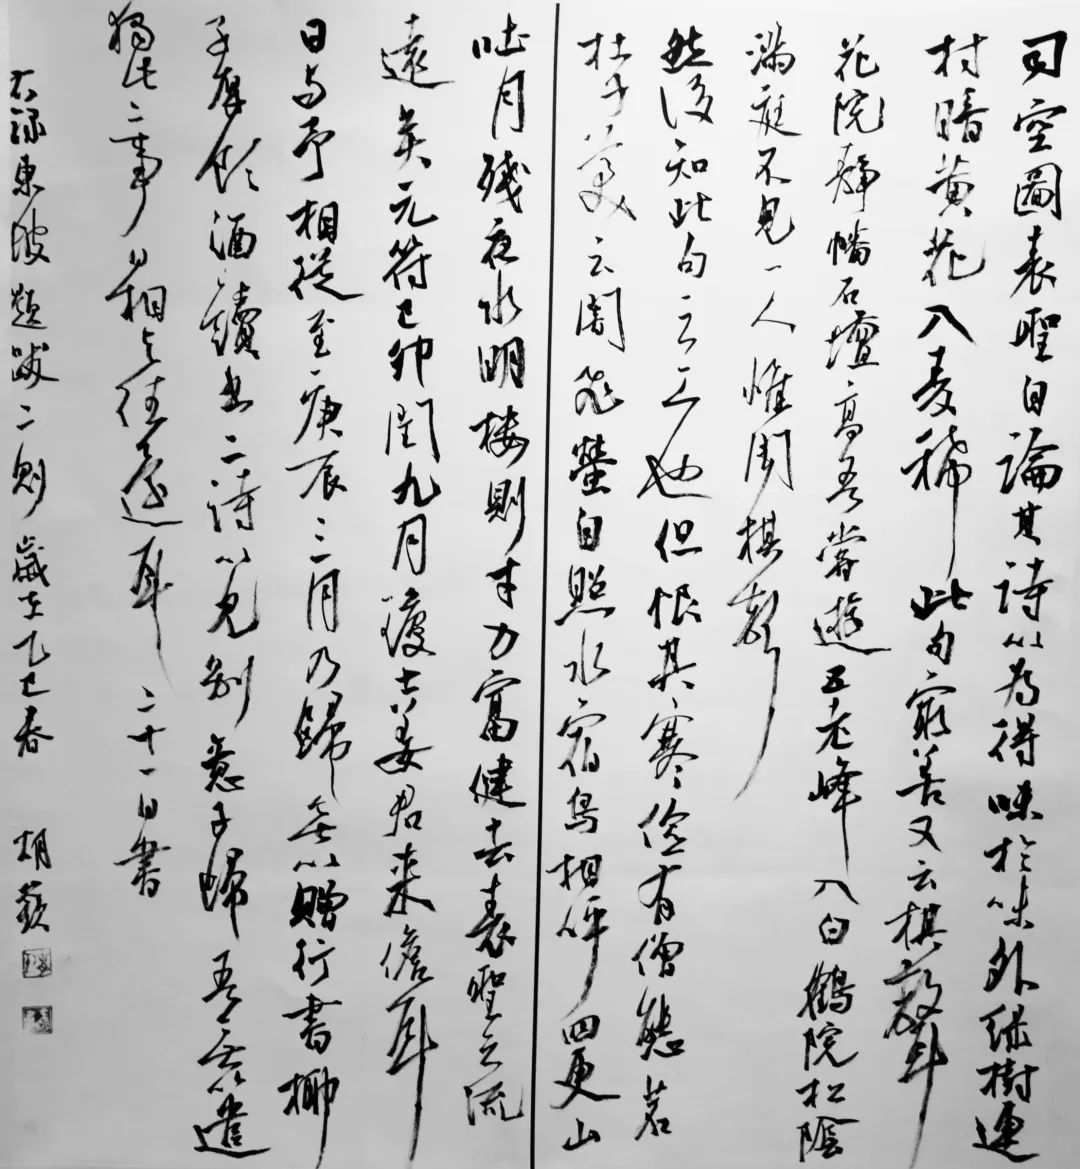 司空圖表聖自論其詩以為得味於味外綠樹連
村暗黃花入麥稀此句㝡善又云棋聲
花院靜幡石壇高吾嘗遊五老峰入白鶴院松陰
滿庭不見一人惟聞棋聲
然後知此句之工也但恨其寒儉有僧態若
杜子美云闇飛螢自照水宿鳥相呼四更山
吐月殘夜水明楼則才力富健去表聖之流
遠矣元符己卯閏九月瓊士姜君來儋耳
日與予相從至庚辰三月乃歸無以贈行書柳
子厚飲酒讀書二詩以見別意子歸吾無以遣
獨此二事日相與往還耳 二十一日書
右錄東坡題跋二則歲在乙巳春 胡